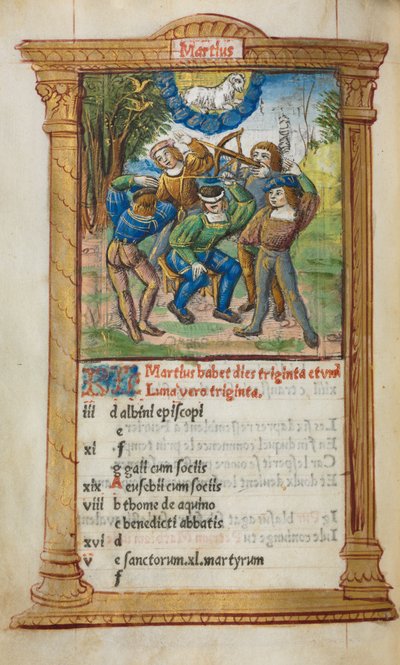 Martius
KL Martius habet dies triginta et vnū
Luna vero triginta.
iii d albini episcopi
e
xi f
g gaii cum sociis
xix A eusebii cum sociis
viii b thome de aquino
c benedicti abbatis
xvi d
v e sanctorum .xl. martyrum
f